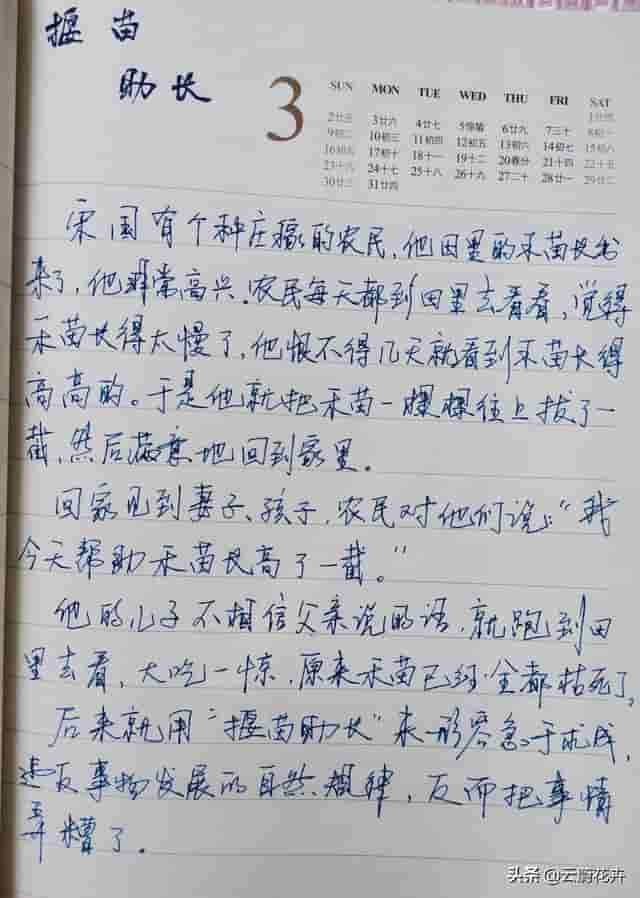 揠苗
助长
3
SUN MON TUE WED THU FRI SAT
1廿四
2廿五 3廿六 4廿七 5惊蛰 6廿九 7三十 8初一
9初二 10初三 11初四 12初五 13初六 14初七 15初八
16初九 17初十 18十一 19十二 20春分 21十四 22十五
23十六 24十七 25十八 26十九 27二十 28廿一 29廿二
30廿三 31廿四
宋国有个种庄稼的农民,他田里的禾苗长出
来了,他非常高兴。农民每天都到田里去看看,觉得
禾苗长得太慢了,他恨不得几天就看到禾苗长得
高高的。于是他就把禾苗一棵棵往上拔了一
截,然后满意地回到家里。
回家见到妻子、孩子,农民对他们说:“我
今天帮助禾苗长高了一截。”
他的儿子不相信父亲说的话,就跑到田
里去看,大吃一惊,原来禾苗已经全都枯死了。
后来就用“揠苗助长”来形容急于求成,
违反事物发展的自然规律,反而把事情
弄糟了。
头条@云腾花卉